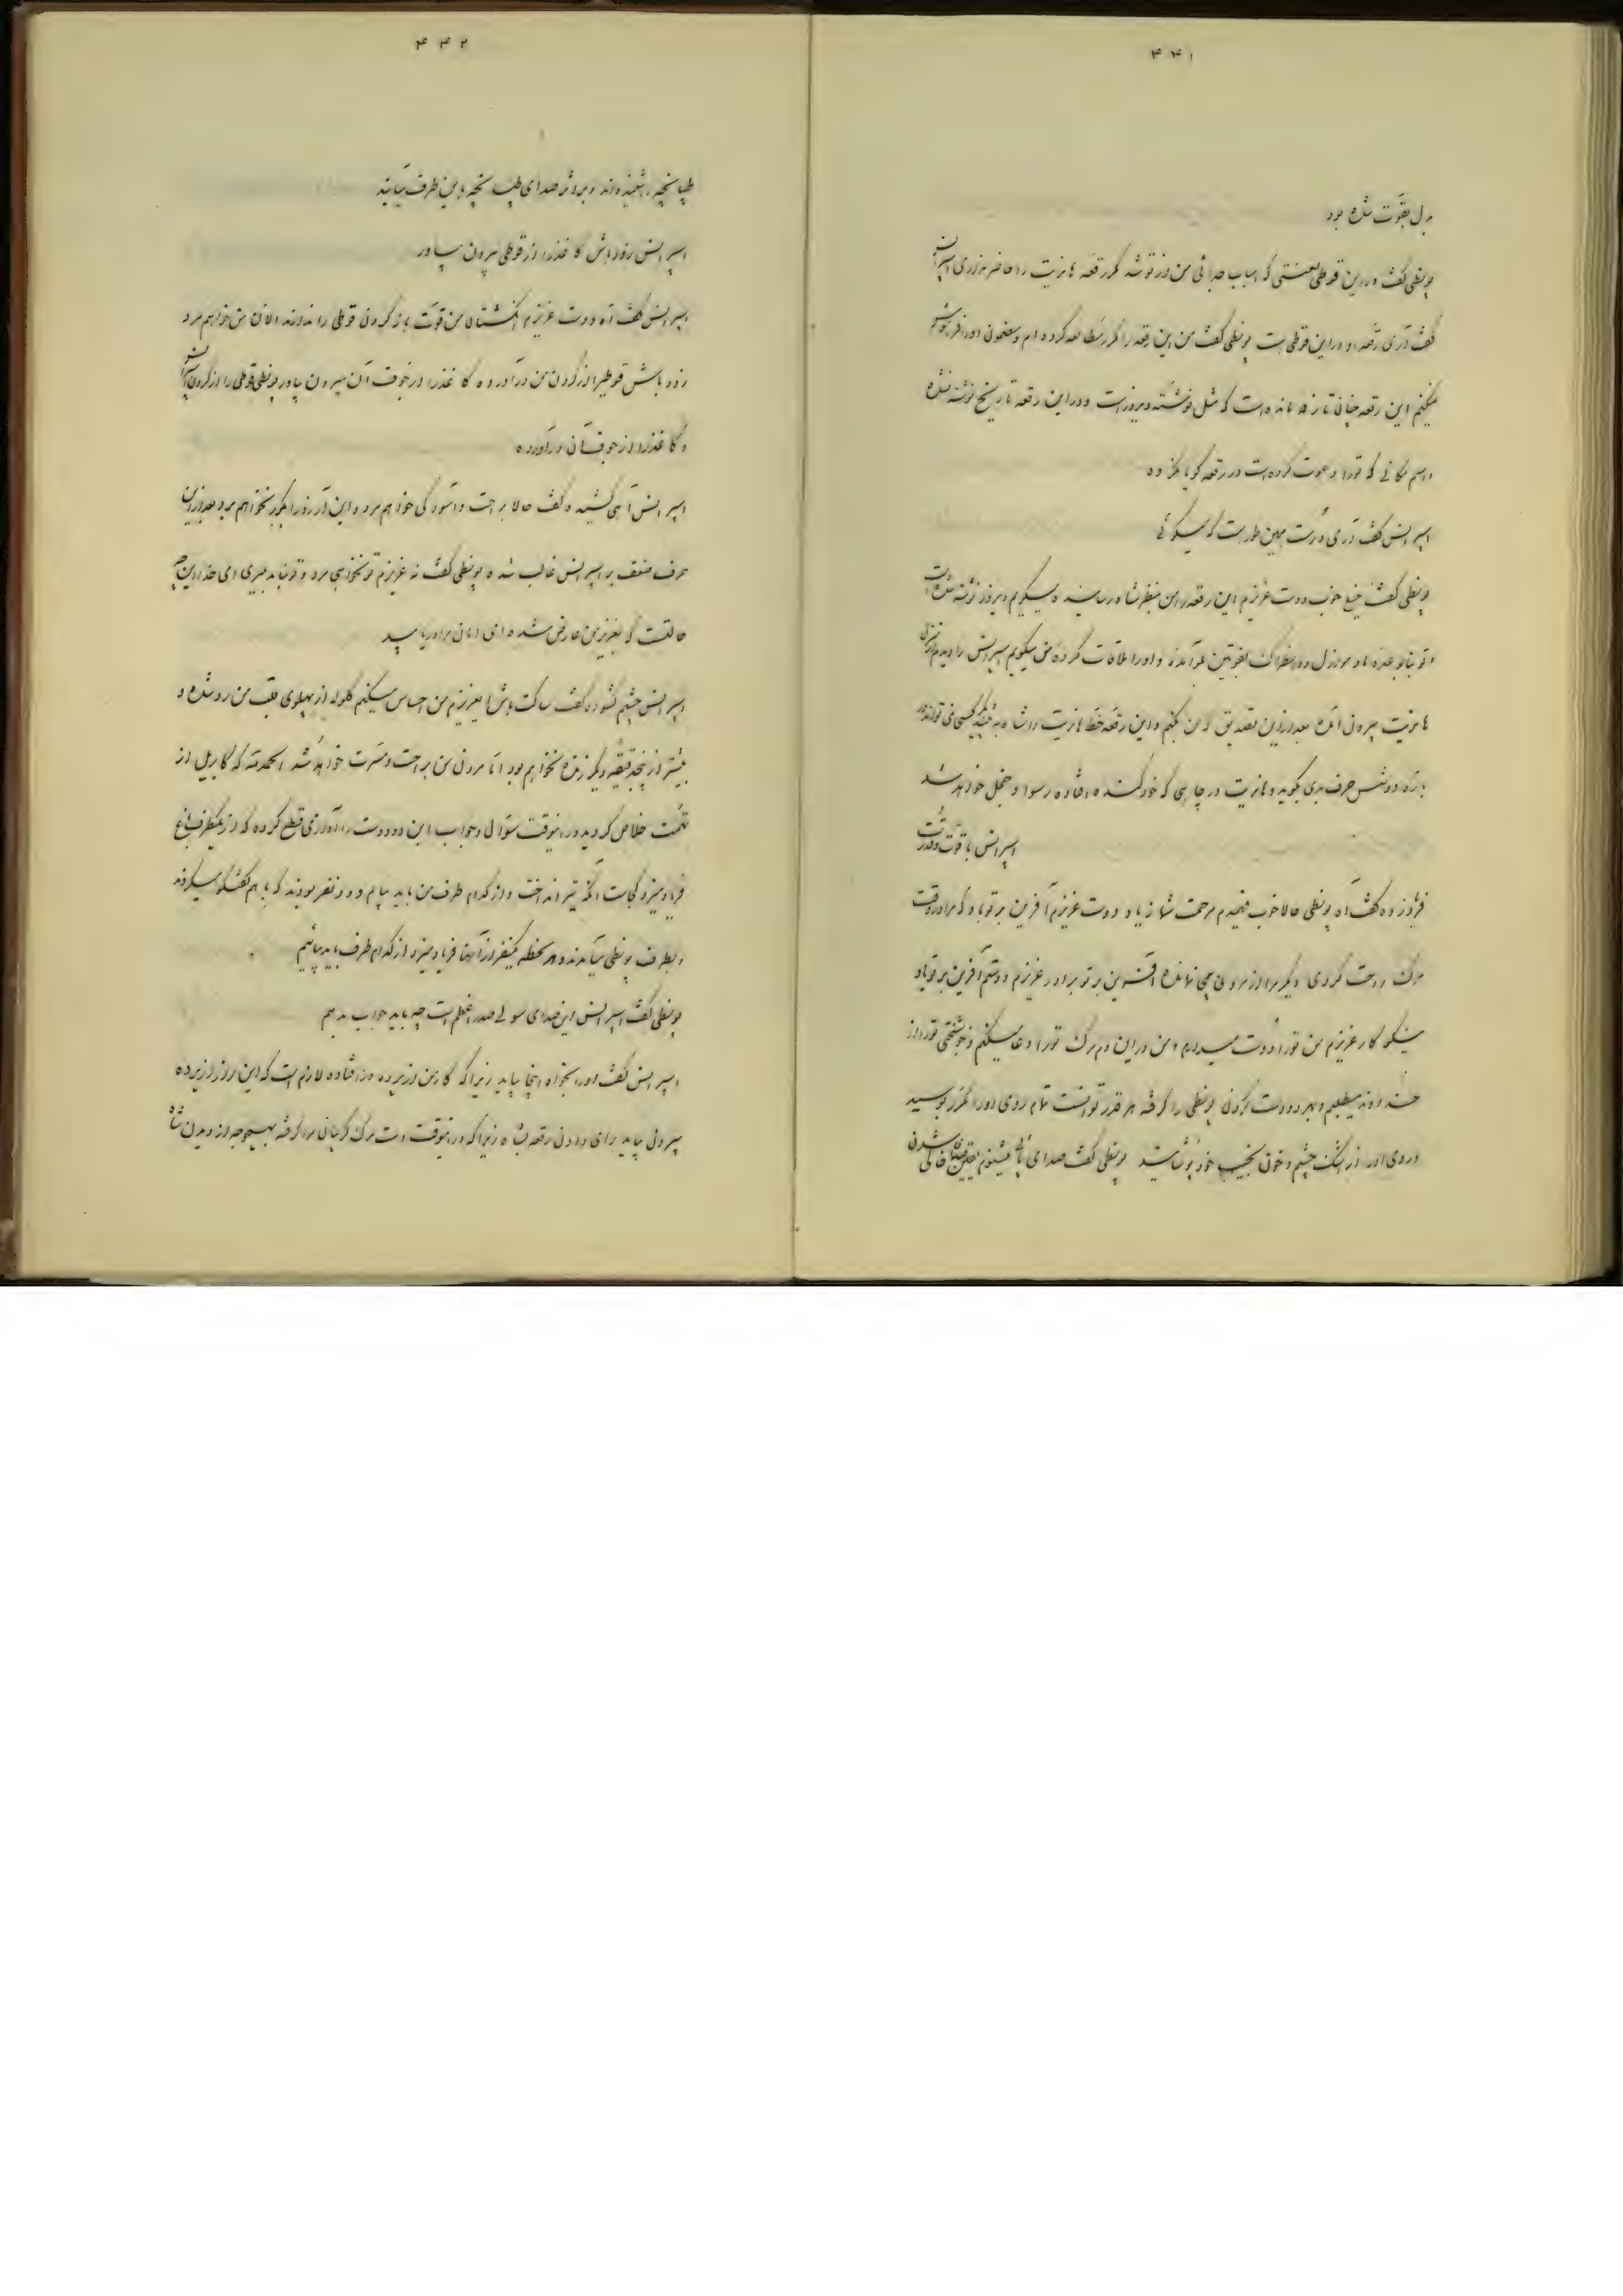 ۴۴۱
بدل بقوت شده بود
پونطی گفت در این قوطی لعنتی که اسباب جدائی من و تو شد مگر رقعه هانریت را حاضر نداری اسپرانس
گفت آری رقعه او در این قوطی است پونطی گفت من این رقعه را مکرر مطالعه کرده ام و مضمون او را فراموش
نمیکنم این رقعه چنان تازه مانده است که مثل نوشته دیروز است و در این رقعه تاریخ نوشته نشده
و اسم مکانی که تو را دعوت کرده است در رقعه گویا نکرده
اسپرانس گفت آری درست همین طور است که میگوئی
پونطی گفت خیلی خوب دوست عزیزم این رقعه را من بنظر شاه رسانیده میگویم دیروز نوشته شده است
و تو بنا بوعده مادموازل دانطراگ بفونتن بلو آمده و او را ملاقات کرده من میگویم اسپرانس را دیدم از منزل
هانریت بیرون آمد بعد از این تصدیق که من بکنم و این رقعه خط هانریت را شاه به بیند دیگر کسی نمی تواند در
باره دوشس حرف بدی بگوید و هانریت در چاهی که خود کنده افتاده رسوا و خجل خواهد شد
اسپرانس با قوت و قدرت
فریاد زده گفت آه پونطی حالا خوب فهمیدم مرحمت شما زیاد دوست عزیزم آفرین بر تو باد که مرا در وقت
مرگ راحت کردی دیگر مرا از مردن بیمی نمانده آفرین بر تو برادر عزیزم دوستم آفرین بر تو باد
نیکو کار عزیزم من تو را دوست میدارم و من در این دم مرگ تو را دعا میکنم و خوشبختی تو را از
خداوند میطلبم و بهر دو دست گردن پونطی را گرفته هر قدر توانست تمام روی او را مکرر بوسید
و روی او را از اشک چشم و خون نجیب خود پوشانید پونطی گفت صدای پائی میشنوم یقین صدای خالی شدن
۴۴۲
طپانچه را شنیده اند و بر اثر صدای طپانچه باین طرف میآیند
اسپرانس زود باش کاغذ را از قوطی بیرون بیاور
اسپرانس گفت آه دوست عزیزم انگشتان من قوت باز کردن قوطی را ندارند الان من خواهم مرد
زود باش قوطی را از گردن من درآورده کاغذ را از جوف آن بیرون بیاور پونطی قوطی را از گردن اسپرانس
و کاغذ را از جوف آن درآورده
اسپرانس آهی کشیده گفت حالا براحت و آسودگی خواهم مرد و این آرزو را بگور نخواهم برد بعد از این
حرف ضعف بر اسپرانس غالب شده پونطی گفت نه عزیزم تو نخواهی مرد و تو نباید بمیری ای خدا این چه
حالتست که بعزیز من عارض شده ای امان مرا دریابید
اسپرانس چشم گشوده گفت ساکت باش ای عزیزم من احساس میکنم گلوله از پهلوی قلب من رد شده و
بیشتر از پنجدقیقه دیگر زنده نخواهم بود اما مردن من براحت و مسرت خواهد شد الحمدلله که گابریل از
تهمت خلاص گردید در اینوقت سؤال و جواب این دو دوست را آوازی قطع کرده که از یکطرف باغ
فریاد میزد کجاست آنکه تیر انداخت و از کدام طرف من باید بیایم و دو نفر بودند که با هم گفتگو میکردند
و بطرف پونطی میآمدند و هر لحظه یکنفر از آنها فریاد میزد از کدام طرف باید بیائیم
پونطی گفت اسپرانس این صدای سولی صدر اعظم است چه باید جواب بدهم
اسپرانس گفت او را بخواه اینجا بیاید زیرا که کار من از پرده در افتاده لازم است که این راز از پرده
بیرون بیاید برای دادن رقعه بشاه زیرا که در اینوقت دست مرگ گریبان مرا گرفته بهیچوجه از دیدن شاه